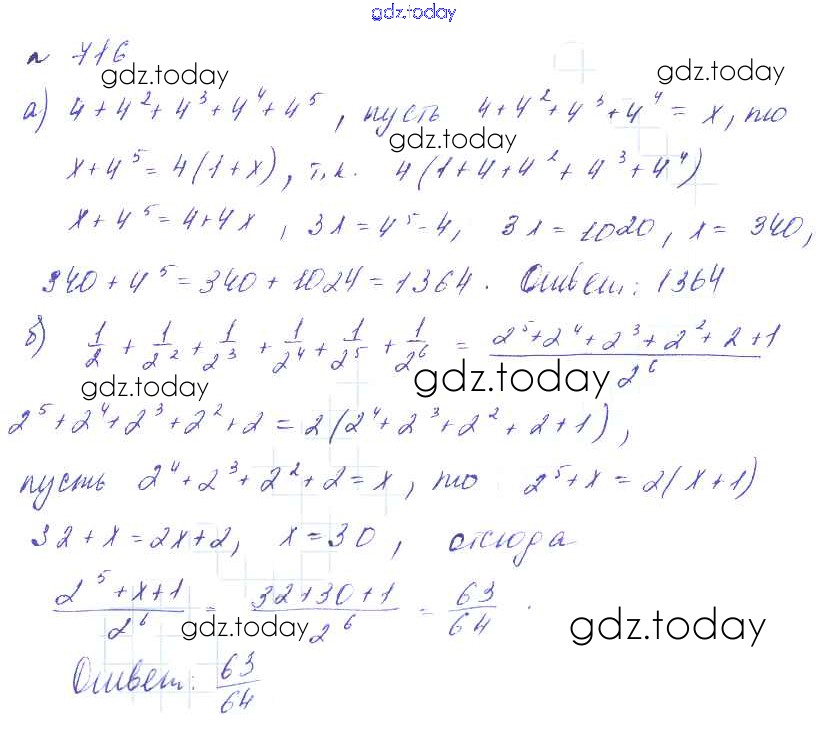 gdz.today
№ 716
gdz.today gdz.today
а) 4+4²+4³+4⁴+4⁵, пусть 4+4²+4³+4⁴ = x, то
gdz.today
x+4⁵=4(1+x), т.к. 4(1+4+4²+4³+4⁴)
x+4⁵=4+4x, 3x=4⁵-4, 3x=1020, x=340,
340+4⁵=340+1024=1364. Ответ: 1364
б) 1/2 + 1/2² + 1/2³ + 1/2⁴ + 1/2⁵ + 1/2⁶ = (2⁵+2⁴+2³+2²+2+1)/2⁶
gdz.today gdz.today
2⁵+2⁴+2³+2²+2=2(2⁴+2³+2²+2+1),
пусть 2⁴+2³+2²+2=x, то 2⁵+x=2(x+1)
32+x=2x+2, x=30, отсюда
(2⁵+x+1)/2⁶ = (32+30+1)/2⁶ = 63/64.
gdz.today gdz.today
Ответ: 63/64